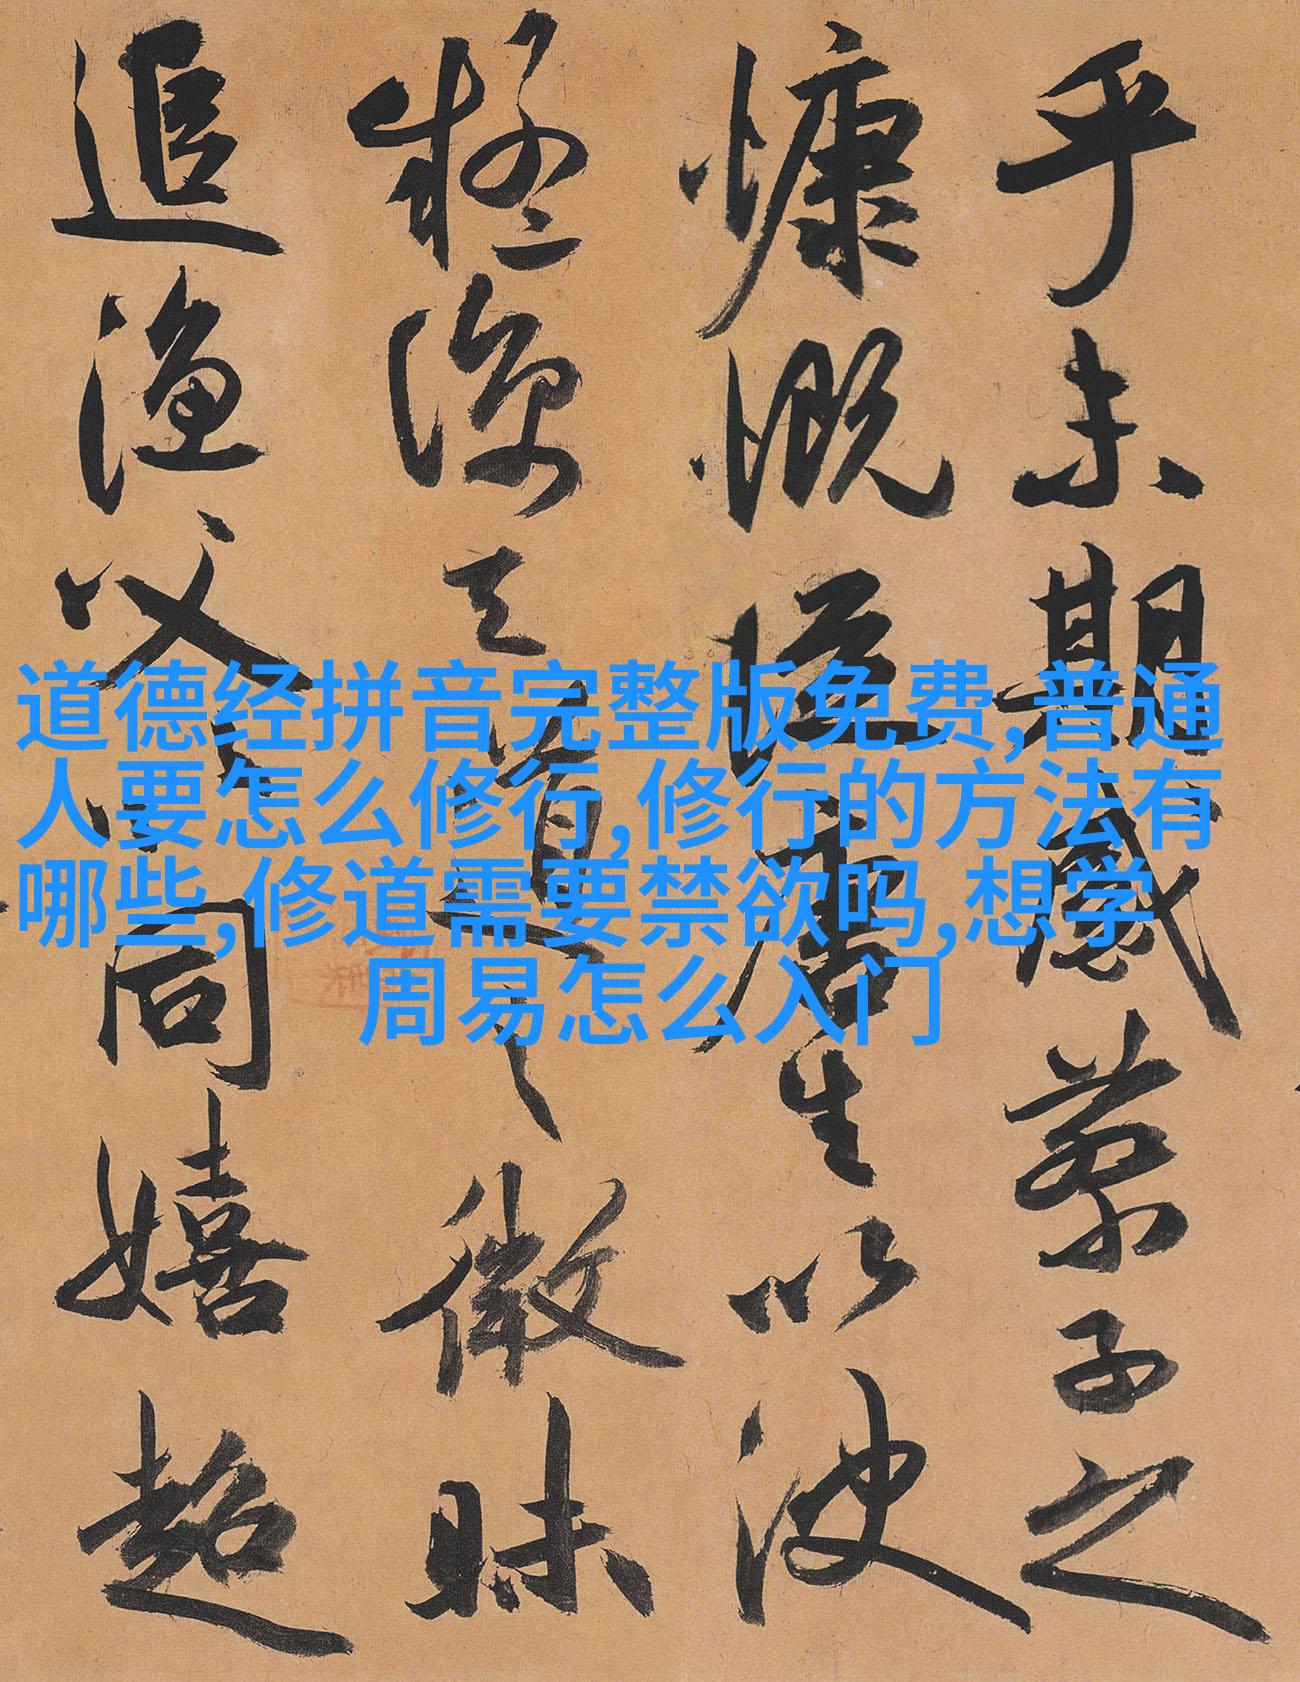 道德经拼音完整版免费,普通
人要怎么修行,修行的方法有
哪些,修道需要禁欲吗,想学
周易怎么入门
乎未期感蔡子之
慷慨從唐生以決
疑諒天道之微昧
追漁父以同嬉超